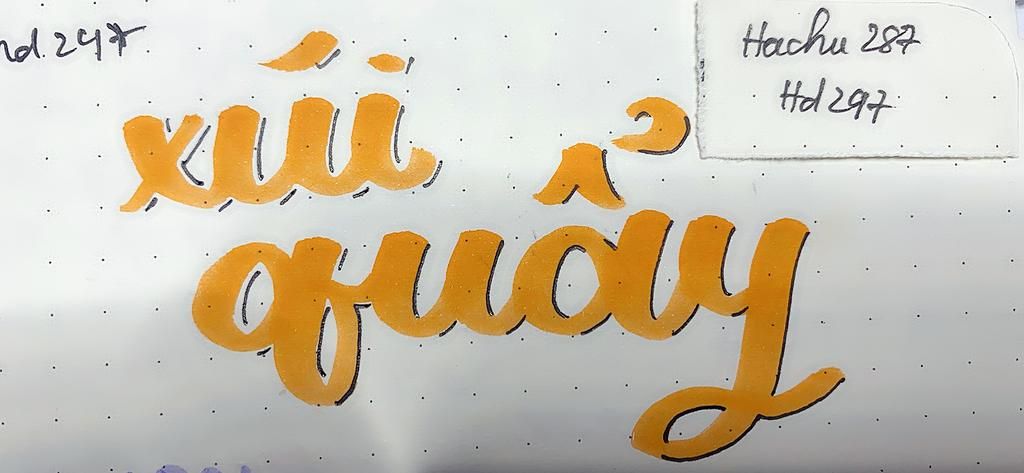 Hachu 287
Hd 297
xúi
quẩy